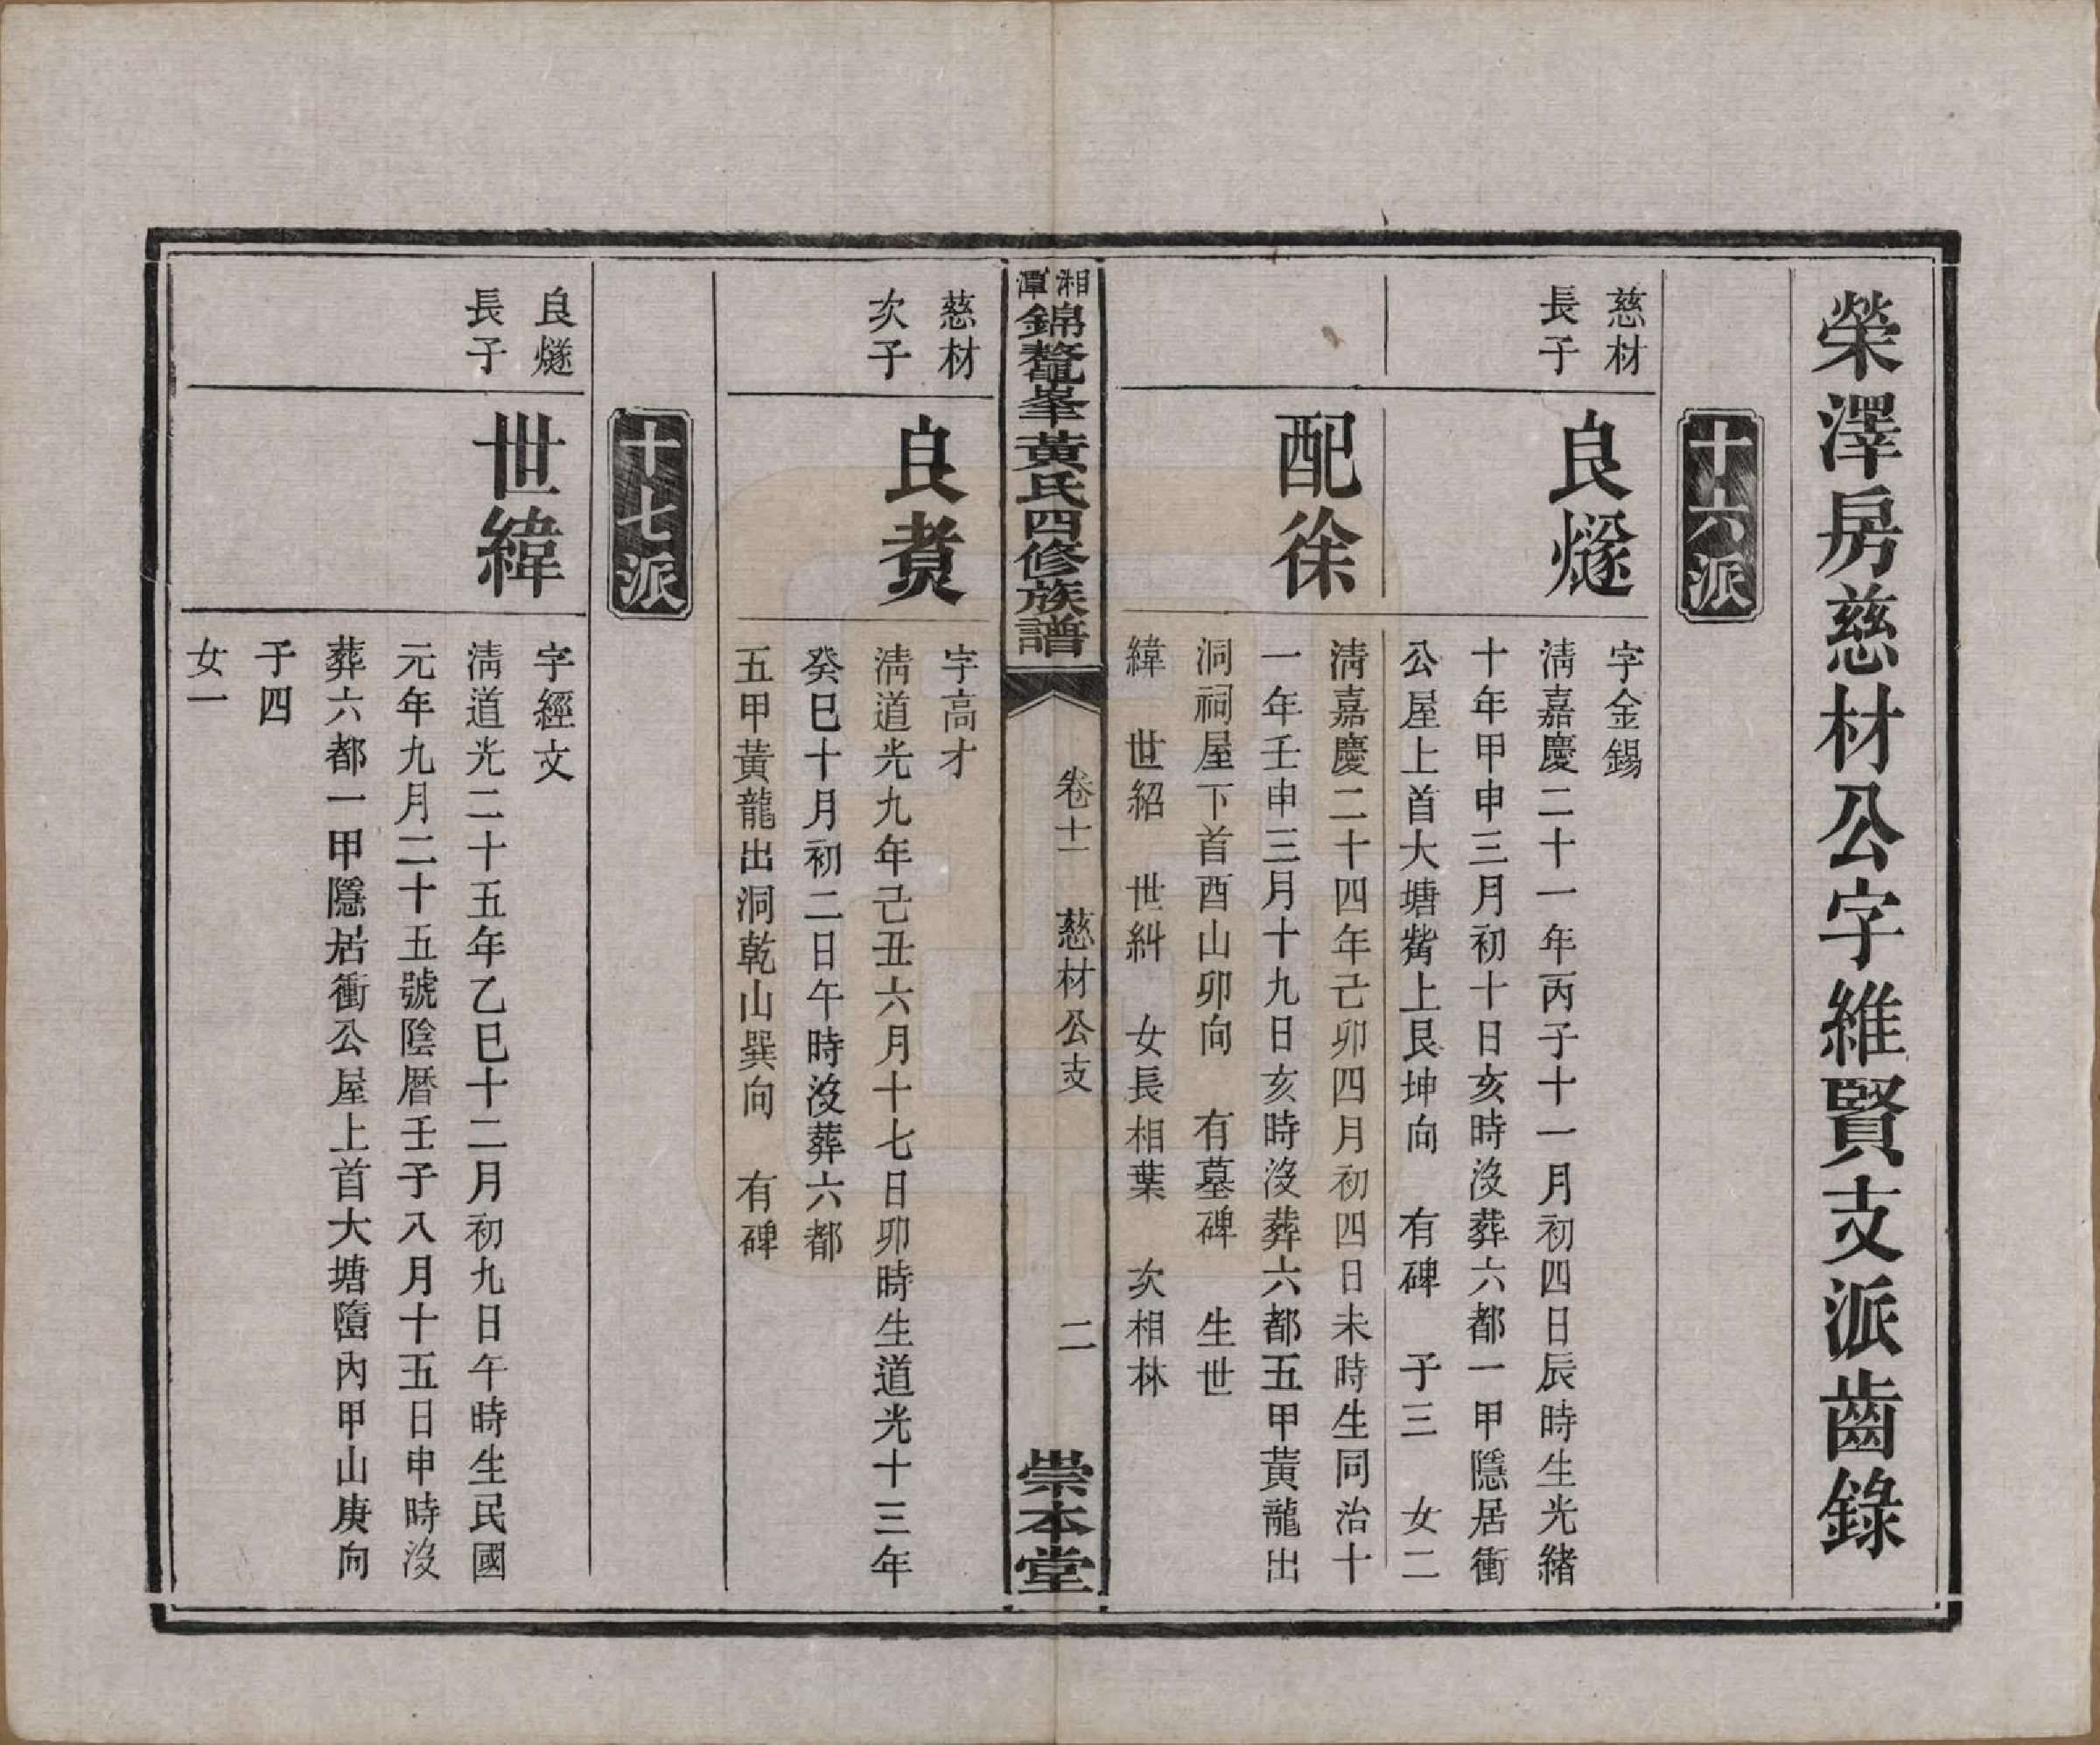 榮澤房慈材公字維賢支派齒錄
十六派
慈材
長子
良燧
字金錫
淸嘉慶二十一年丙子十一月初四日辰時生光緒
十年甲申三月初十日亥時沒葬六都一甲隱居衝
公屋上首大塘觜上艮坤向 有碑 子三 女二
配徐
淸嘉慶二十四年己卯四月初四日未時生同治十
一年壬申三月十九日亥時沒葬六都五甲黃龍出
洞祠屋下首酉山卯向 有墓碑 生世
緯 世紹 世糾 女長相葉 次相林
湘潭錦鼇峯黃氏四修族譜
卷十一 慈材公支
二
崇本堂
慈材
次子
良賁
字高才
淸道光九年己丑六月十七日卯時生道光十三年
癸巳十月初二日午時沒葬六都
五甲黃龍出洞乾山巽向 有碑
十七派
良燧
長子
世緯
字經文
淸道光二十五年乙巳十二月初九日午時生民國
元年九月二十五號陰曆壬子八月十五日申時沒
葬六都一甲隱居衝公屋上首大塘墮內甲山庚向
子四
女一